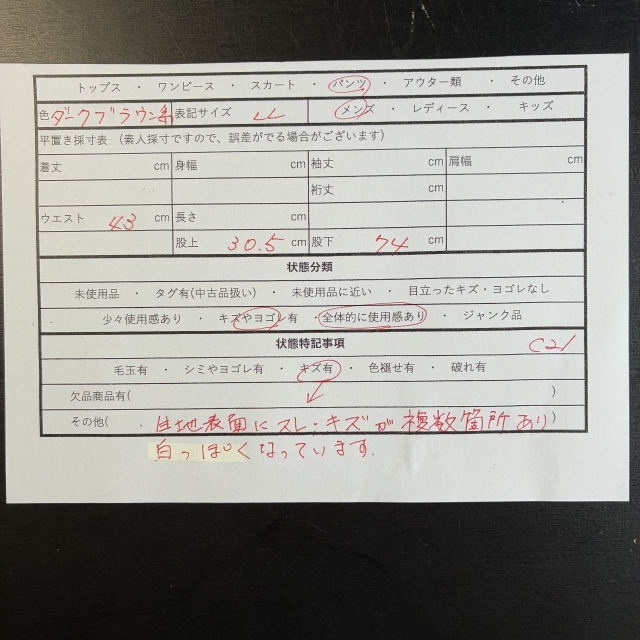 トップス ・ ワンピース ・ スカート ・ パンツ ・ アウター類 ・ その他
色 ダークブラウン系 表記サイズ LL メンズ ・ レディース ・ キッズ
平置き採寸表 (素人採寸ですので、誤差がでる場合がございます)
着丈 cm 身幅 cm 袖丈 cm 肩幅 cm
裄丈 cm
ウエスト 43 cm 長さ cm
股上 30.5 cm 股下 74 cm
状態分類
未使用品 ・ タグ有(中古品扱い) ・ 未使用品に近い ・ 目立ったキズ・ヨゴレなし
少々使用感あり ・ キズやヨゴレ有 ・ 全体的に使用感あり ・ ジャンク品
状態特記事項 C21
毛玉有 ・ シミやヨゴレ有 ・ キズ有 ・ 色褪せ有 ・ 破れ有
欠品商品有( )
その他( . 生地表面にスレ・キズが複数箇所あり )
白っぽくなっています.